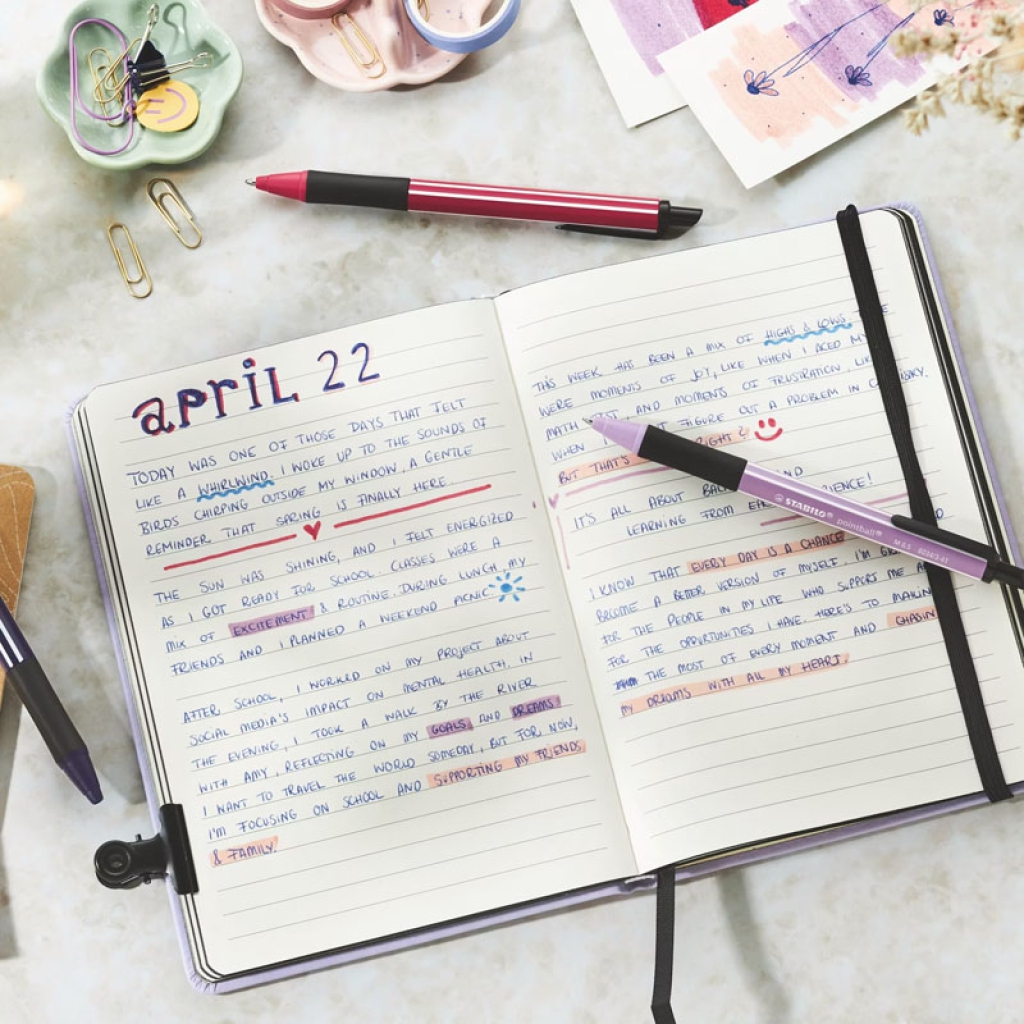 april 22
TODAY WAS ONE OF THOSE DAYS THAT FELT
LIKE A WHIRLWIND. I WOKE UP TO THE SOUNDS OF
BIRDS CHIRPING OUTSIDE MY WINDOW, A GENTLE
REMINDER THAT SPRING IS FINALLY HERE.
THE SUN WAS SHINING, AND I FELT ENERGIZED
AS I GOT READY FOR SCHOOL. CLASSES WERE A
MIX OF EXCITEMENT & ROUTINE. DURING LUNCH, MY
FRIENDS AND I PLANNED A WEEKEND PICNIC.
AFTER SCHOOL, I WORKED ON MY PROJECT ABOUT
SOCIAL MEDIA'S IMPACT ON MENTAL HEALTH. IN
THE EVENING, I TOOK A WALK BY THE RIVER
WITH AMY, REFLECTING ON MY GOALS AND DREAMS.
I WANT TO TRAVEL THE WORLD SOMEDAY, BUT FOR NOW,
I'M FOCUSING ON SCHOOL AND SUPPORTING MY FRIENDS
& FAMILY.
THIS WEEK HAS BEEN A MIX OF HIGHS & LOWS.
WERE MOMENTS OF JOY, LIKE WHEN I ACED MY
MATH TEST, AND MOMENTS OF FRUSTRATION, LIKE
WHEN I FIGURE OUT A PROBLEM IN
BUT THAT'S RIGHT?
IT'S ALL ABOUT
LEARNING FROM
I KNOW THAT EVERY DAY IS A CHANCE
BECOME A BETTER VERSION OF MYSELF. I'M
FOR THE PEOPLE IN MY LIFE WHO SUPPORT ME
FOR THE OPPORTUNITIES I HAVE. HERE'S TO MAKING
THE MOST OF EVERY MOMENT AND
MY DREAMS WITH ALL MY HEART.
STABILO® pointball®